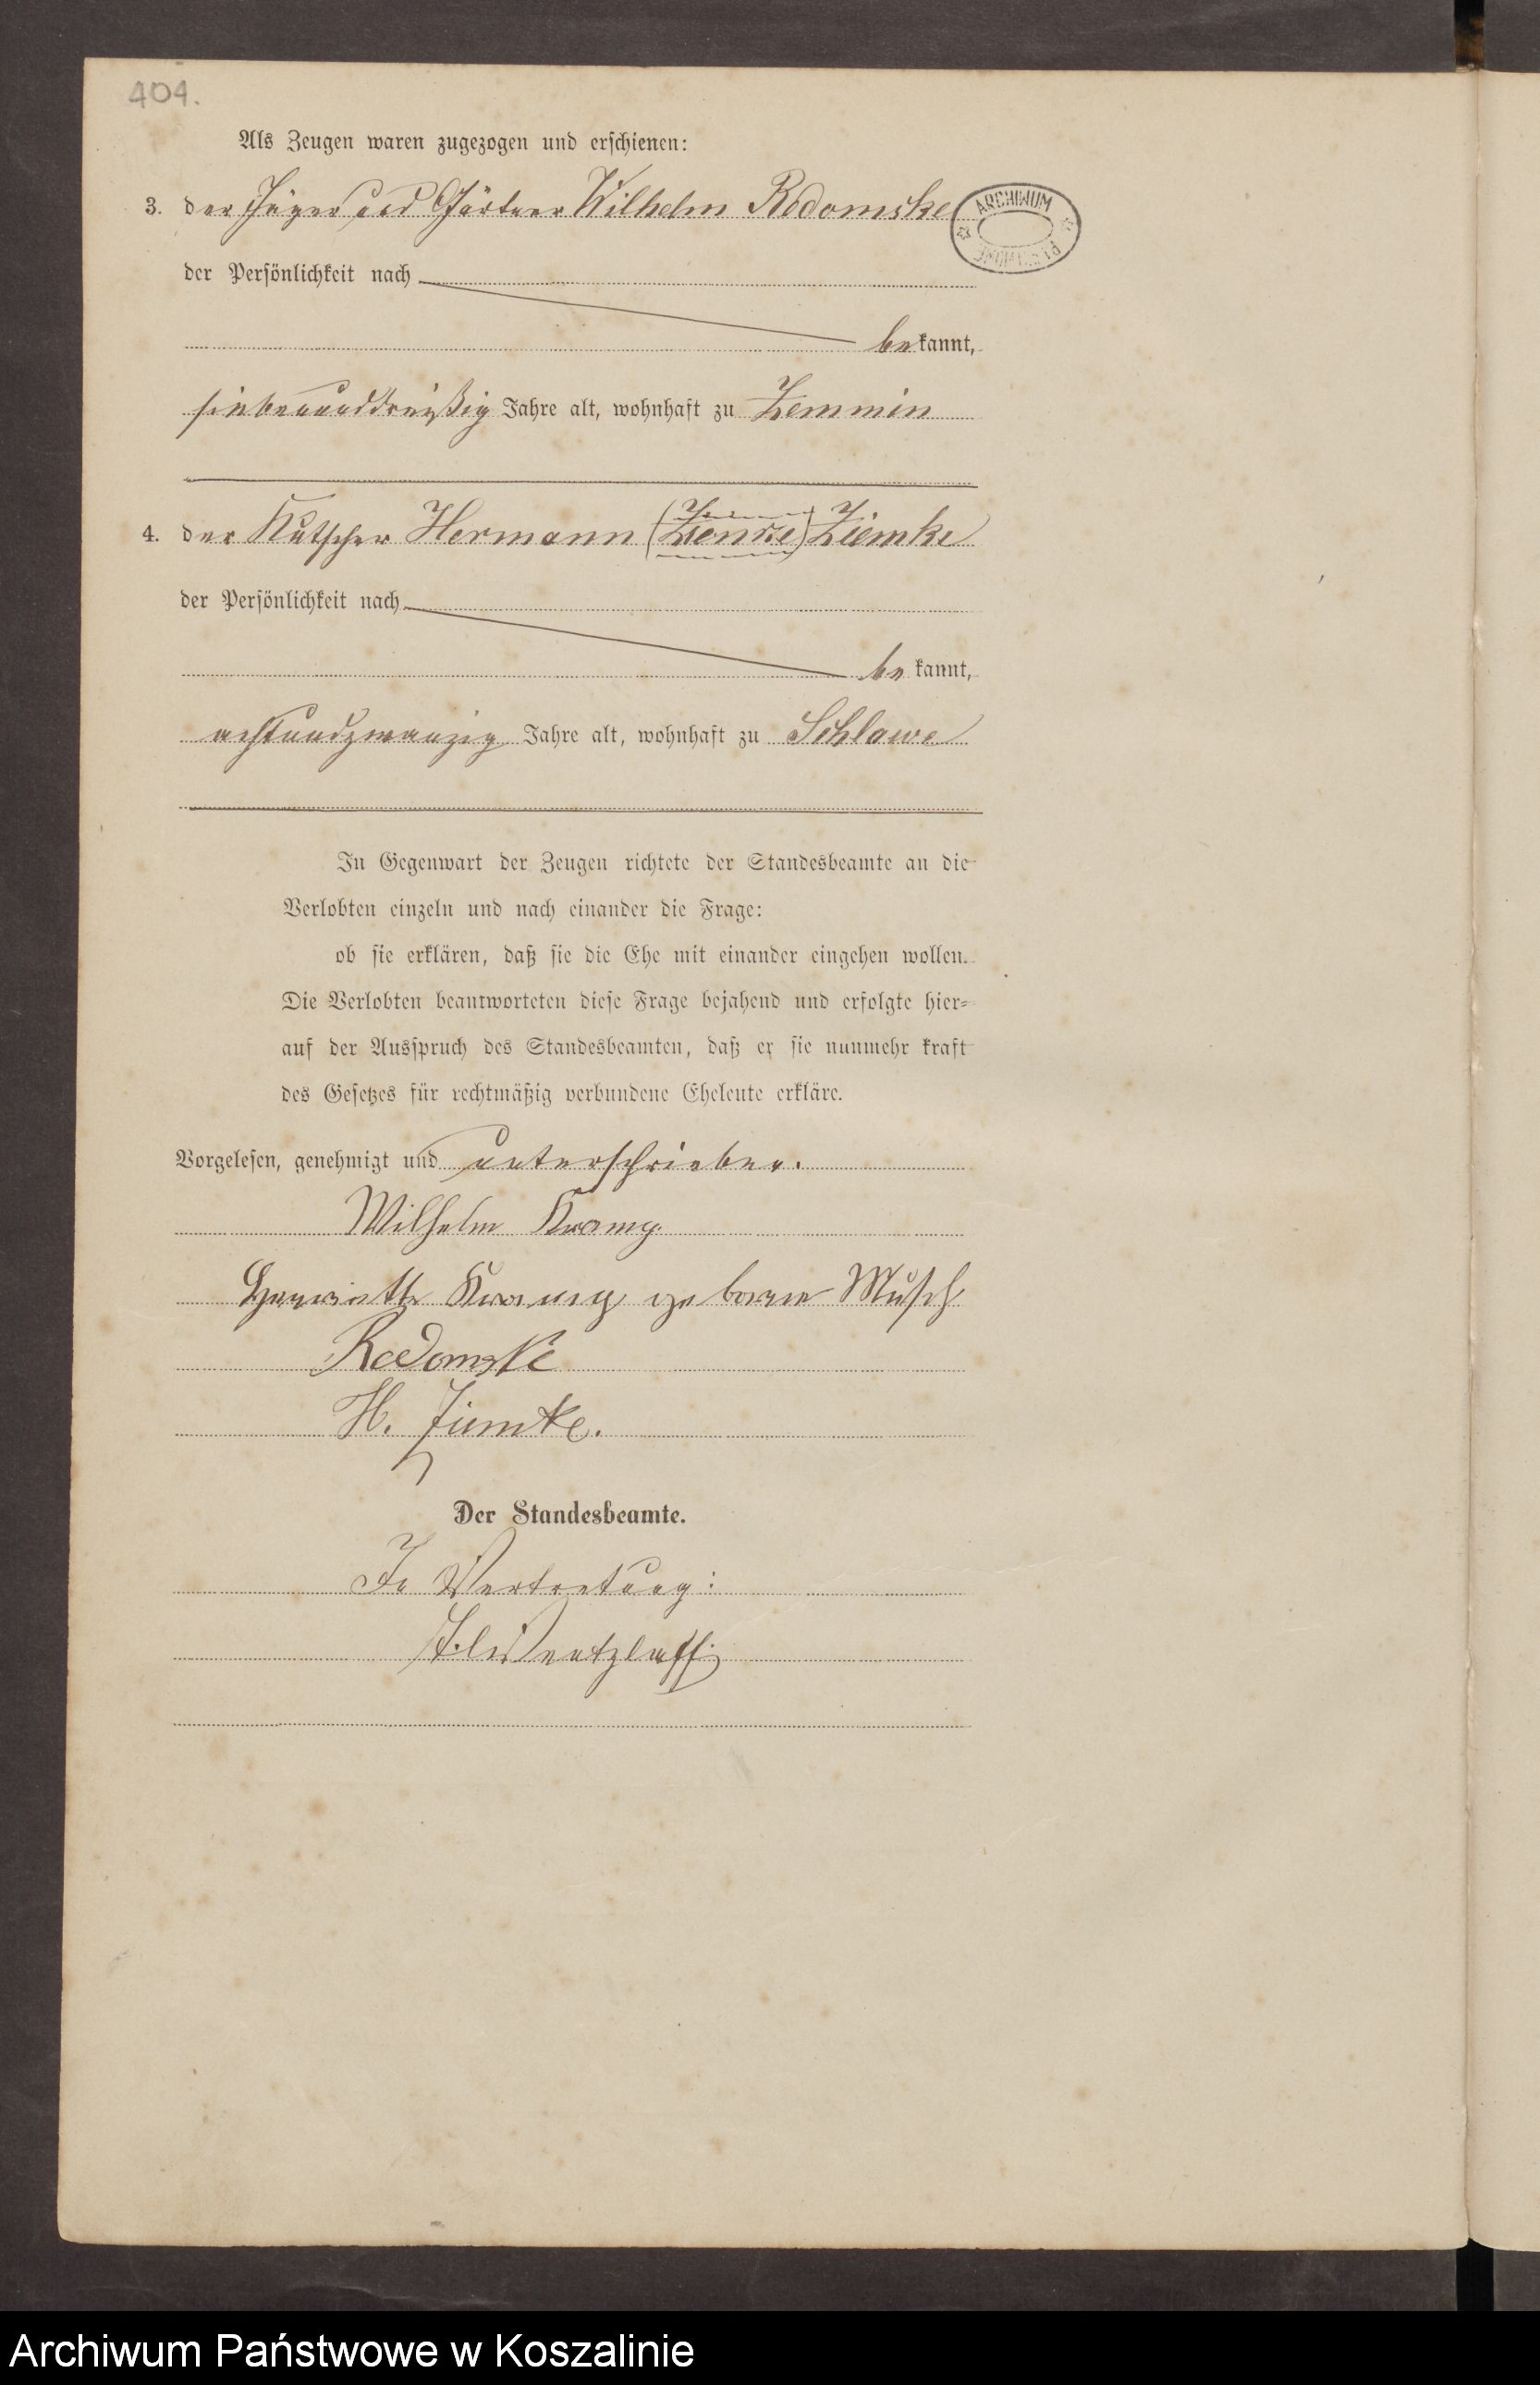 404.
Als Zeugen waren zugezogen und erschienen:
3. der Jäger und Gärtner Wilhelm Radomske
ARCHIWUM
PAŃSTWOWE
der Persönlichkeit nach
bekannt,
siebenunddreißig Jahre alt, wohnhaft zu Zemmin
4. der Kutscher Hermann (Zienke) Ziemke
der Persönlichkeit nach
bekannt,
achtundzwanzig Jahre alt, wohnhaft zu Schlawe
In Gegenwart der Zeugen richtete der Standesbeamte an die
Verlobten einzeln und nach einander die Frage:
ob sie erklären, daß sie die Ehe mit einander eingehen wollen.
Die Verlobten beantworteten diese Frage bejahend und erfolgte hier-
auf der Ausspruch des Standesbeamten, daß er sie nunmehr kraft
des Gesetzes für rechtmäßig verbundene Eheleute erkläre.
Vorgelesen, genehmigt und unterschrieben.
Wilhelm Kramp
Henriette Kramp geborne Musch
Radomske
H. Ziemke.
Der Standesbeamte.
In Vertretung:
Wentzlaff
Archiwum Państwowe w Koszalinie